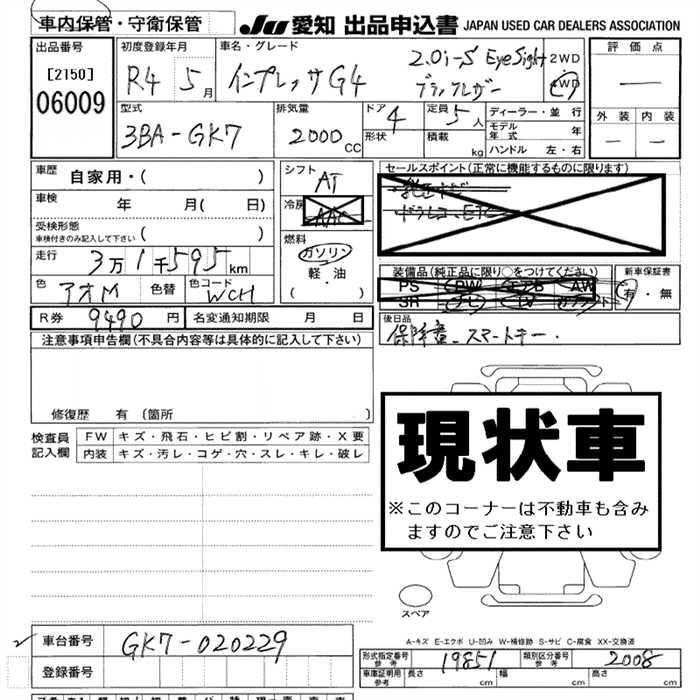 車内保管・守衛保管
JU 愛知 出品申込書 JAPAN USED CAR DEALERS ASSOCIATION
出品番号
[2150]
06009
初度登録年月
R4 5月
車名・グレード
インプレッサG4
2.0i-S EyeSight
ブラックレザー
2WD
4WD
評価点
—
外装 内装
— —
型式
3BA-GK7
排気量
2000 CC
ドア 4
形状
定員 5人
積載 kg
ディーラー・並行
モデル年式 年
ハンドル 左・右
車歴 自家用・( )
車検 年 月( 日)
受検形態
車検付きのみ記入して下さい ( )
走行 3万1千595km
色 アオM 色替 色コード WCH
シフト AT
冷房 AAC
燃料
ガソリン
軽・油
( )
セールスポイント(正常に機能するものに限ります)
純正ナビ
ドラレコ、ETC
装備品(純正品に限り○をつけてください)
PS PW エアB AW
SR ナビ TV カワシート
新車保証書
有・無
R券 9490円 名変通知期限 月 日
後日品
保障書、スマートキー.
注意事項申告欄(不具合内容等は具体的に記入して下さい)
修復歴 有 〔箇所 〕
検査員記入欄
FW キズ・飛石・ヒビ割・リペア跡・X要
内装 キズ・汚レ・コゲ・穴・スレ・キレ・破レ
現状車
※このコーナーは不動車も含み
ますのでご注意下さい
スペア
A-キズ E-エクボ U-凹み W-補修跡 S-サビ C-腐食 XX-交換済
車台番号 GK7-020229
登録番号
形式指定番号
参考
19851
類別区分番号
参考
2008
車庫証明用
参考
長さ 幅 高さ
cm cm cm